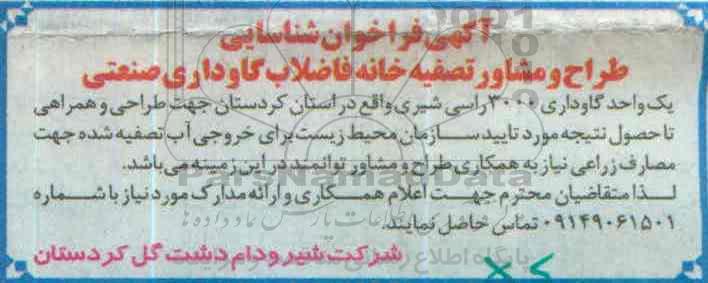 آگهی فراخوان شناسایی
طراح و مشاور تصفیه خانه فاضلاب گاوداری صنعتی
یک واحد گاوداری ۳۰۰۰ راسی شیری واقع در استان کردستان جهت طراحی و همراهی
تا حصول نتیجه مورد تایید سازمان محیط زیست برای خروجی آب تصفیه شده جهت
مصارف زراعی نیاز به همکاری طراح و مشاور توانمند در این زمینه می باشد.
لذا متقاضیان محترم جهت اعلام همکاری و ارائه مدارک مورد نیاز با شماره
۰۹۱۴۹۰۶۱۵۰۱ تماس حاصل نمایند.
شرکت شیر و دام دشت گل کردستان
ParsNamadData